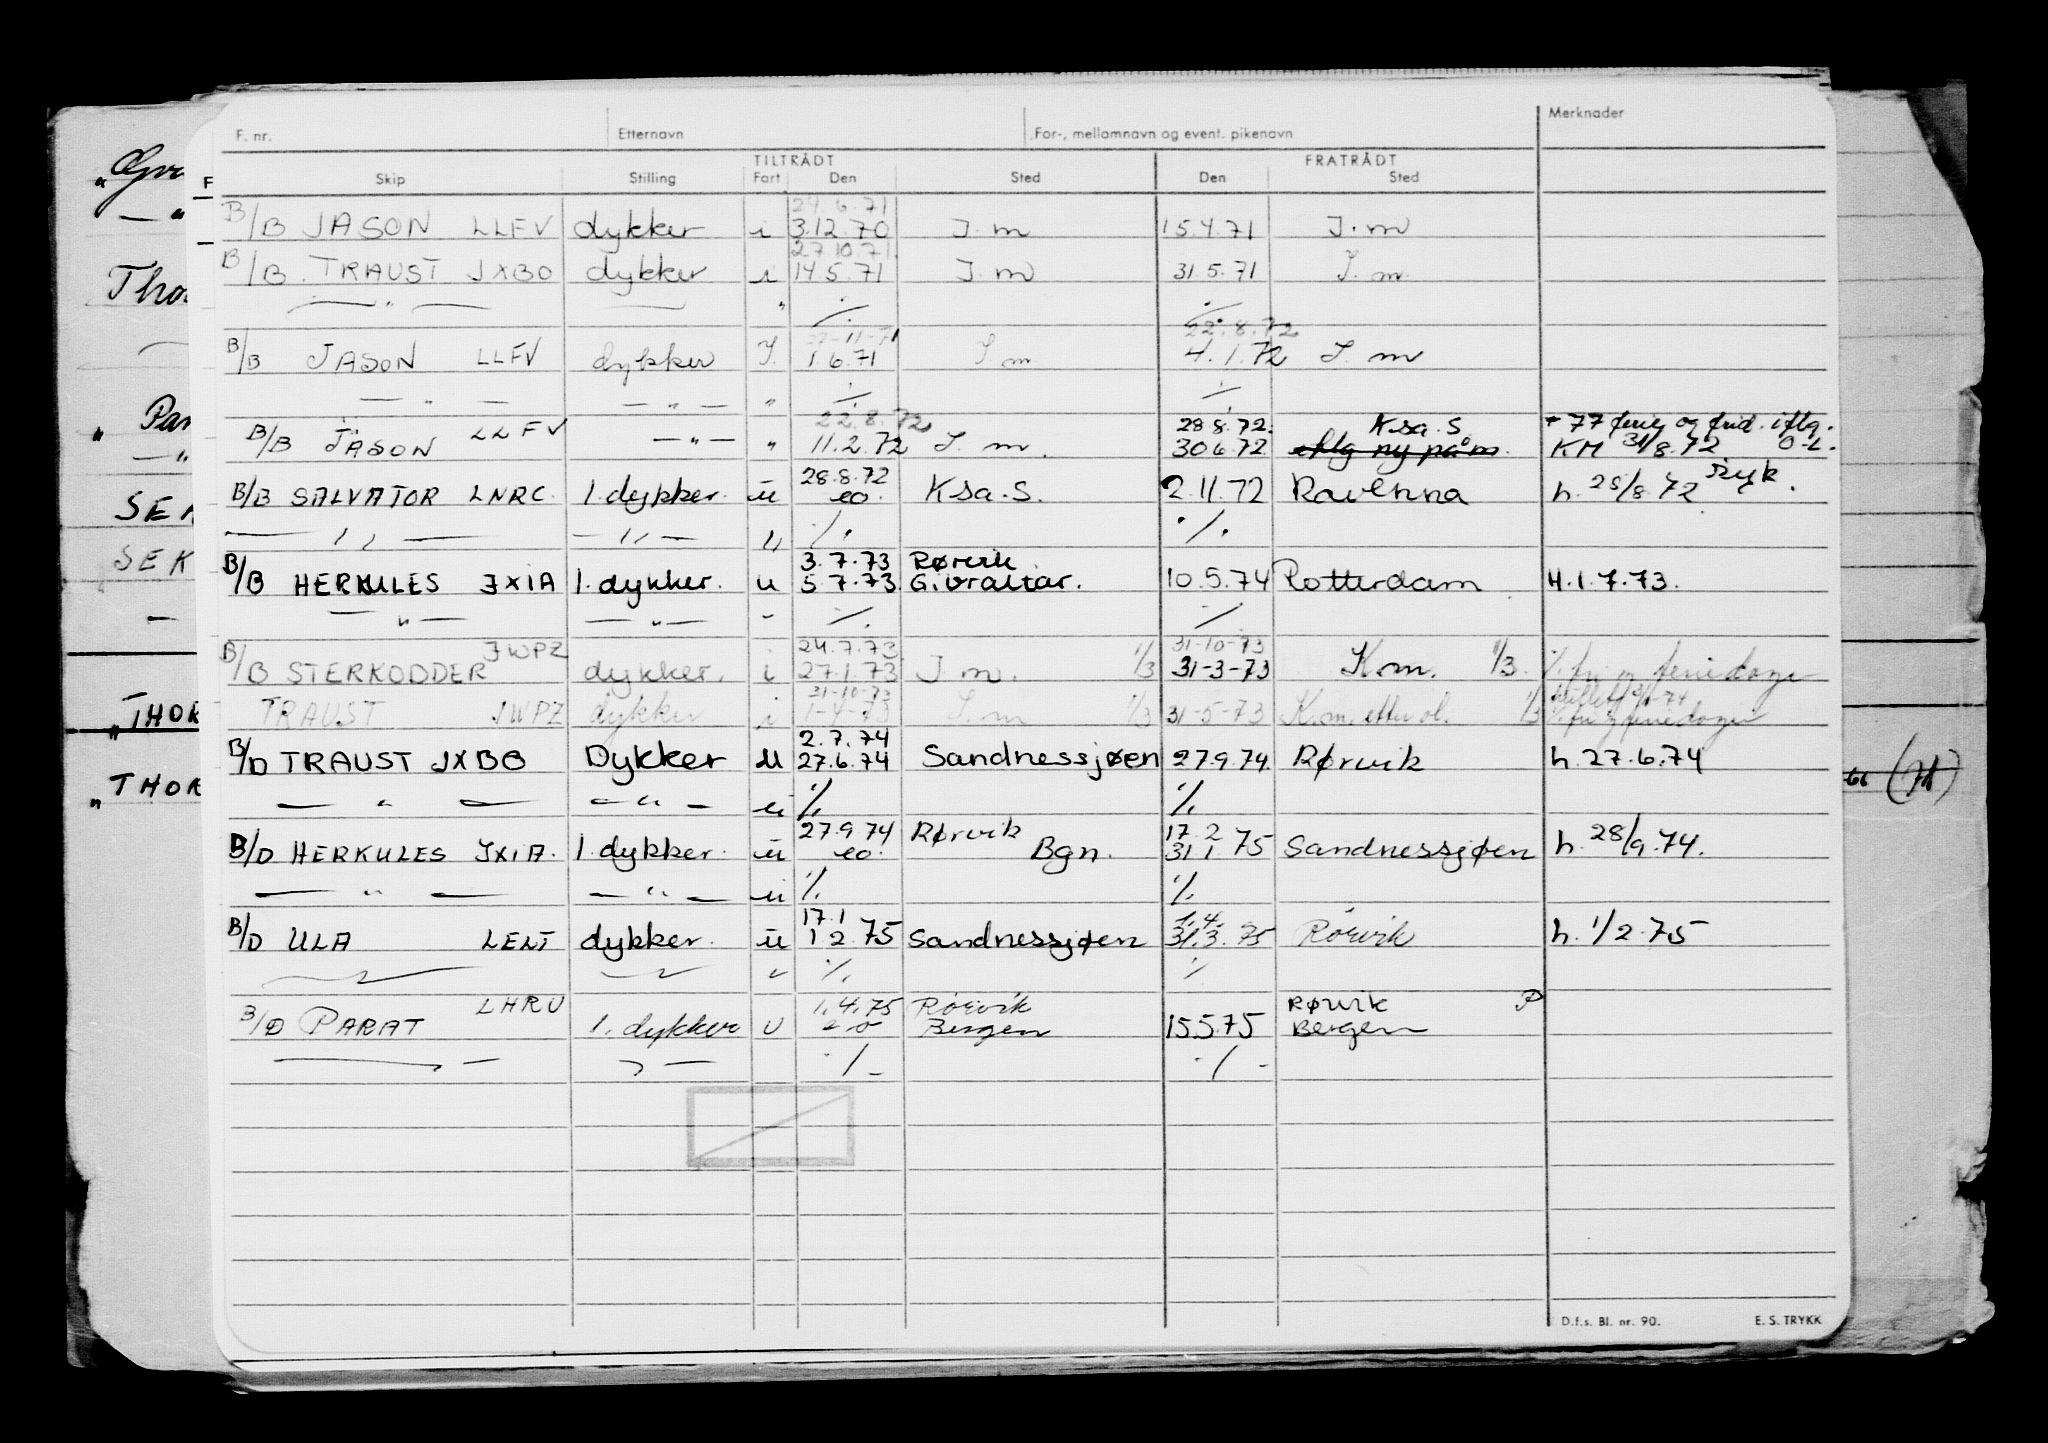 F. nr. Etternavn For-, mellomnavn og event. pikenavn Merknader
TILTRÅDT FRATRÅDT
Skip Stilling Fart Den Sted Den Sted
24.6.71
B/B JASON LLFV dykker i 3.12.70 I.m 15.4.71 I.m
27.10.71.
B/B. TRAUST JXBO dykker i 14.5.71 I.m 31.5.71 I.m.
— " — — " ./. ./.
27-11-71 22.8.72
B/B JASON LLFV dykker I. 1.6.71 I m 4.1.72 I. m
— " — — " — " ./. ./.
22.8.72 28.8.72. Ksa.S + 77 ferie og frid. iflg.
B/B JASON LLFV — " — " 11.2.72 I. m. 30.6.72 KM 31/8.72 O-L.
28.8.72
B/B SALVATOR LNRC. 1. dykker. u eo. Ksa.S. 2.11.72 Ravenna h. 28/8.72
— " — — " — " ./. ./.
3.7.73 Rørvik
B/B HERKULES JXIA 1. dykker. u 5.7.73. Gibraltar. 10.5.74 Rotterdam H.1.7.73.
— " — — " — " ./. ./.
JWPZ 24.7.73 31-10-73
B/B STERKODDER dykker. i 27.1.73 I.m. 1/3 31-3-73 K.m. 1/3. feriedager
31-10-73
TRAUST JWPZ dykker i 1-4-73 I.m 1/3 31-5-73 K.m. etter ol. 1/3 feriedager
2.7.74
B/D TRAUST JXBO Dykker u 27.6.74 Sandnessjøen 27.9.74. Rørvik h. 27.6.74
— " — — " — u ./. ./.
27.9.74 Rørvik 17.2
B/D HERKULES JXIA. 1. dykker. u eo. Bgn. 31.1.75 Sandnessjøen h. 28/9.74.
— " — — " — u ./. ./.
17.1 1.4.
B/D ULA LELT dykker. u 1.2.75 Sandnessjøen 31.3.75 Rørvik h. 1/2.75
— " — — " — " ./. ./.
LHRU 1.4.75 Rørvik Rørvik P
B/D PARAT 1. dykker u eo Bergen 15.5.75 Bergen
— " — — " — ./. ./.
D.f.s. Bl. nr. 90. E. S. TRYKK
SEK
"THOR
"THOR